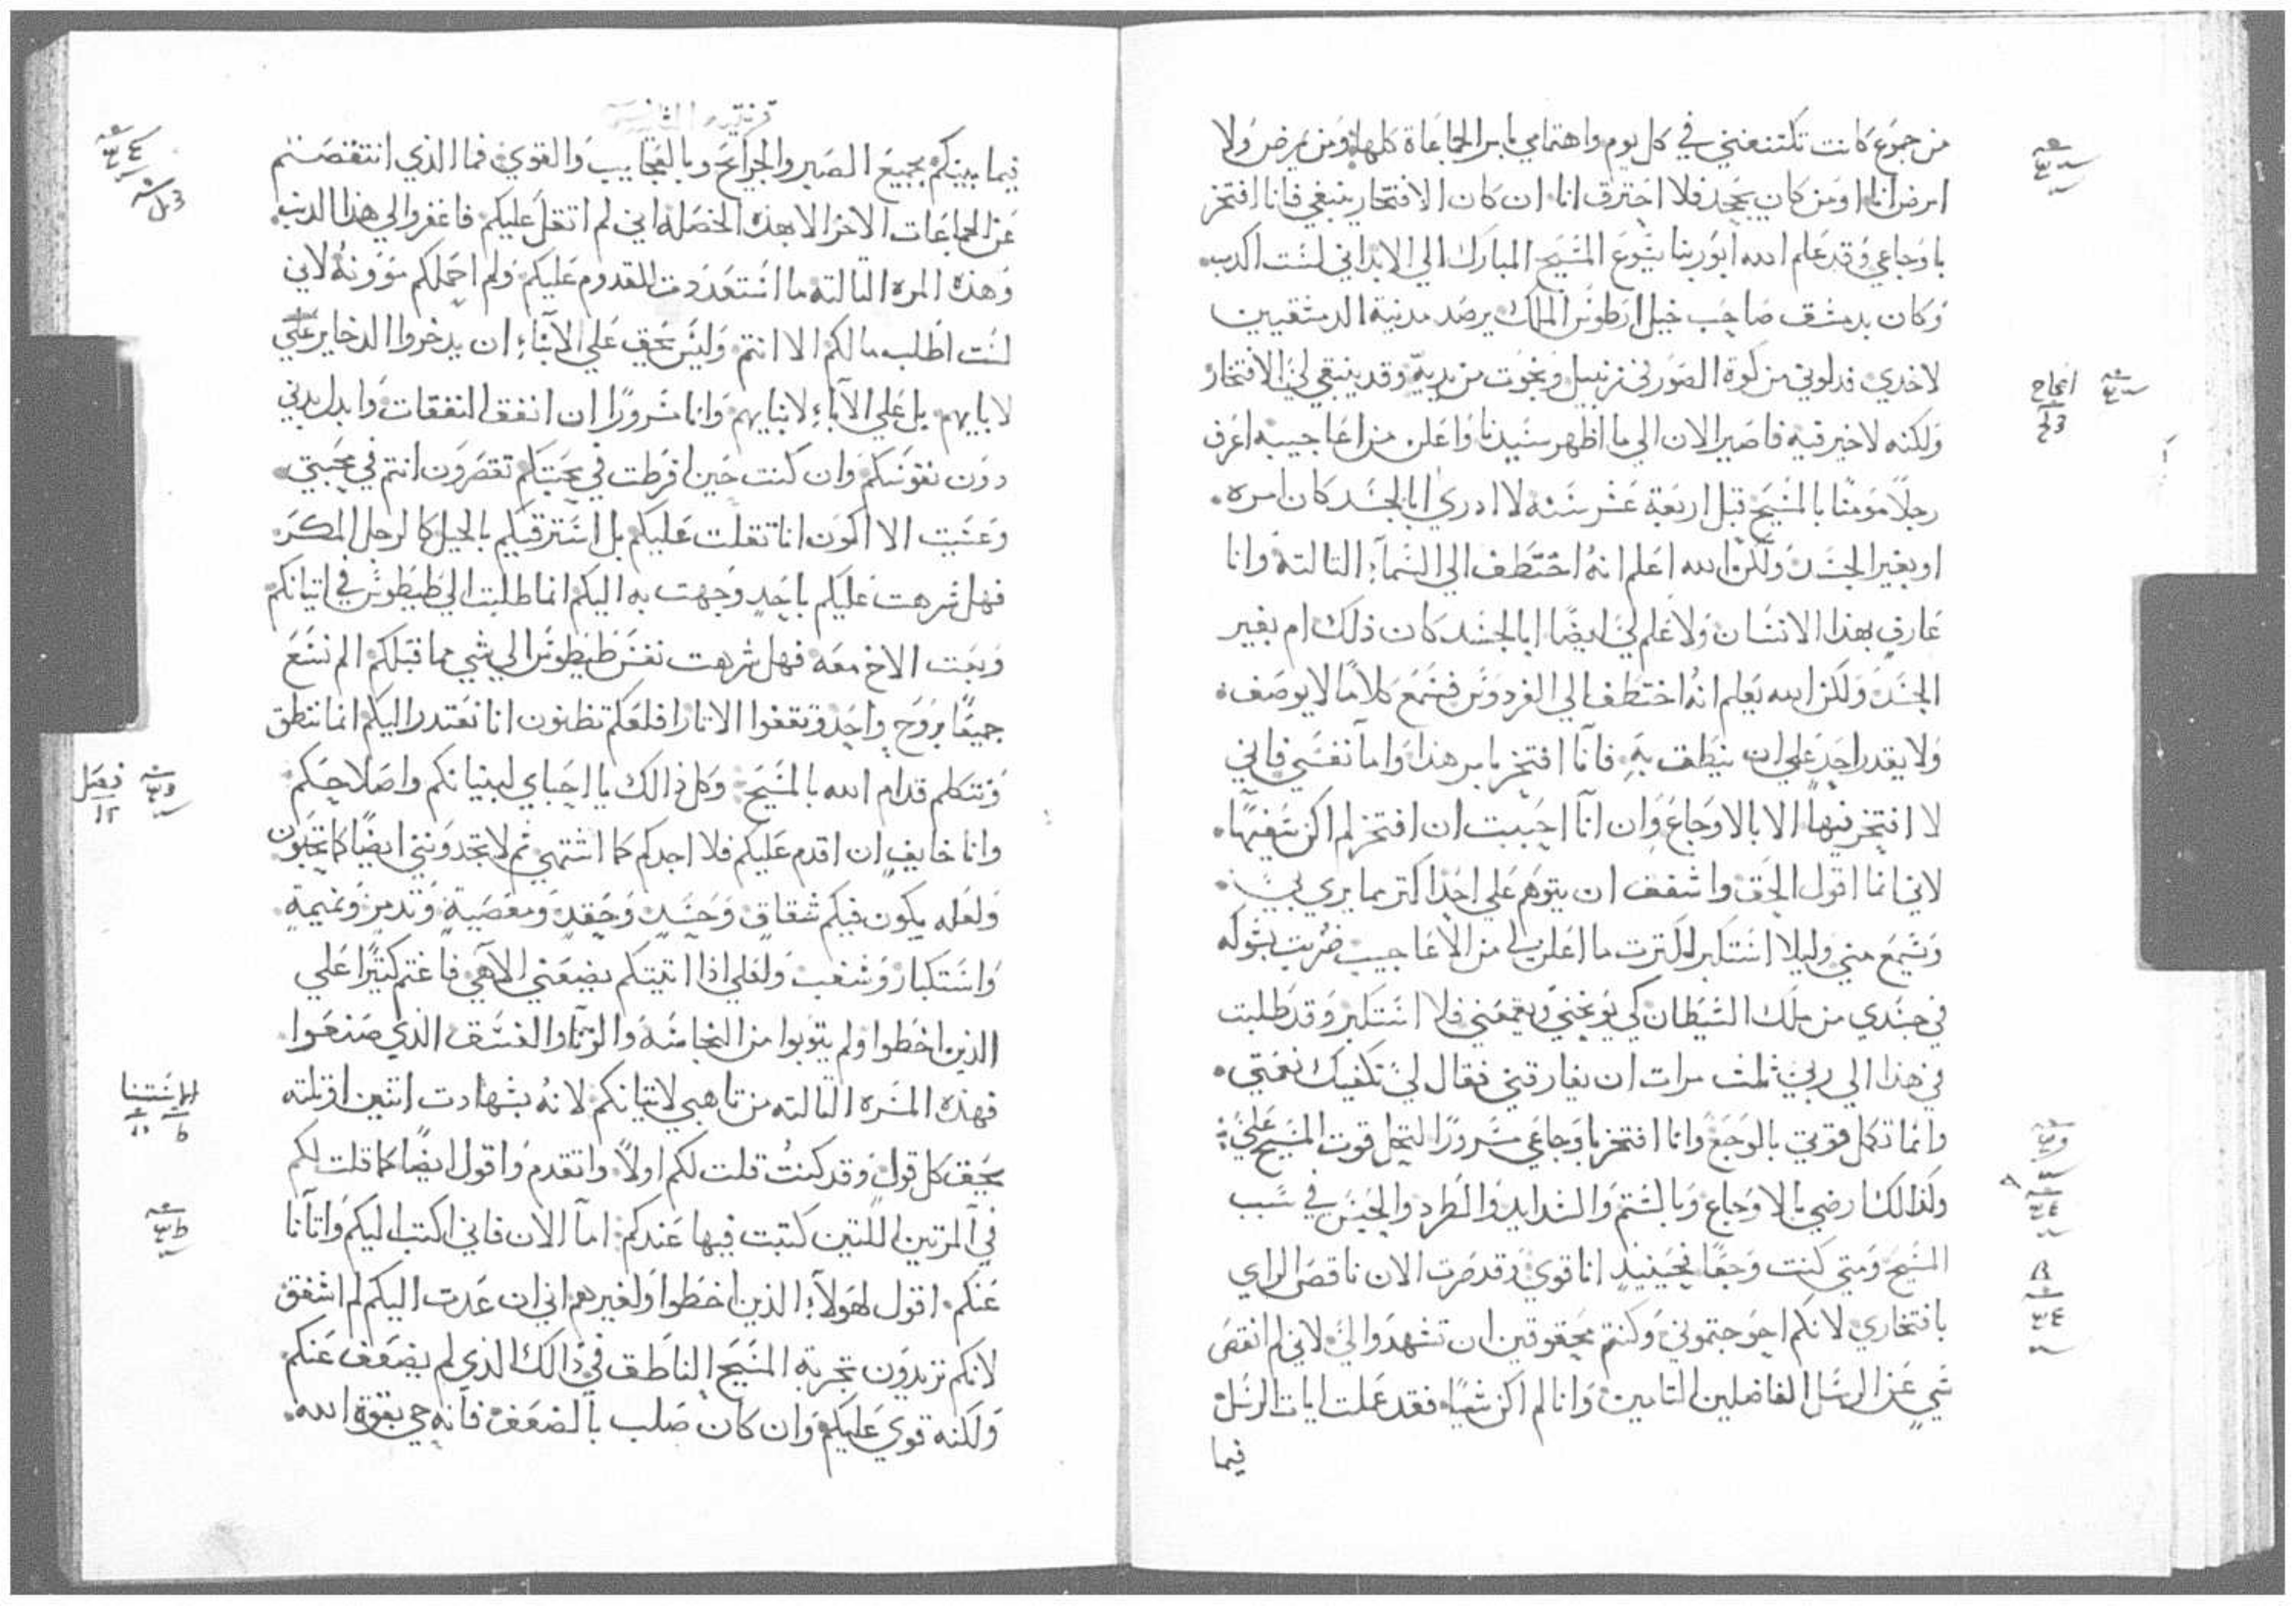 من جموع كانت تكتنفني في كل يوم واهتمامي بامر الجماعاة كلها ومن يمرض ولا
امرض انا او من كان يجحد فلا احترق انا ان كان الافتخار ينبغي فانا افتخر
باوجاعي وقد علم الله ابو ربنا يسوع المسيح المبارك الي الابد اني لست اكدب
وكان بدمشق صاحب خيل ارطوس الملك يرصد مدينة الدمشقيين
لاخدي فدلوني من كوة الصور في زنبيل ونجوت من يديه وقد ينبغي لي الافتخار
ولكنه لا خير فيه فاصير الان الي ما اظهر سيدنا واعلن من اعاجيبه اعرف
رجلاً مومنًا بالمسيح قبل اربعة عشر سنه لا ادري ابالجسد كان امره
او بغير الجسد ولكن الله اعلم انه اختطف الي السمآء التالتة وانا
عارف بهدا الانسان ولا علم لي ايضًا ابالجسد كان ذلك ام بغير
الجسد ولكن الله يعلم انه اختطف الي الفردوس فسمع كلامًا لا يوصف
ولا يقدر احد علي ان ينطق به فانا افتخر بامر هذا واما نفسي فاني
لا افتخر فيها الا بالاوجاع وان انا احببت ان افتخر لم اكن سفيهًا
لاني انما اقول الحق واشفق ان يتوهم علي احدًا اكتر مما يري بي
ويسمع مني وليلا استكبر لكترت ما اعلن لي من الاعاجيب ضربت بشوكه
في جسدي من ملك الشيطان كي يوبخني ويقمعني فلا استكبر وقد طلبت
في هذا الي ربي ثلث مرات ان يفارقني فقال لي تكفيك نعمتي
وانما تكمل قوتي بالوجع وانا افتخر باوجاعي مسرورًا لتحل قوت المسيح علي
ولذالك ارضي بالاوجاع وبالشتم والشدايد والطرد والحبس في سبب
المسيح ومتي كنت وجعًا فحينيدٍ انا قوي وقد صرت الان ناقص الراي
بافتخاري لانكم احوجتموني وكنتم محقوقين ان تشهدوا لي لاني لم انقص
شي عن الرسل الفاضلين التامين وانا لم اكن شيًا فقد عملت ايات الرسل
فيما
انجاح
فيما بينكم بجميع الصبر والجرايح وبالعجايب والقوي فما الذي انتقصتم
عن الجماعات الاخر الا بهذه الخصله اني لم اتقل عليكم فاغفروا لي هذا الدنب
وهذه المره التالته ما استعددت للقدوم عليكم ولم احملكم موونةً لاني
لست اطلب مالكم الا انتم وليس يحق علي الابنآء ان يدخروا الدخاير
لابايهم بل علي الآباء لابنايهم وانا مسرورًا ان انفق النفقات وابدل بدني
دون نفوسكم وان كنت حين افرطت في محبتكم تقصرون انتم في محبتي
وعسيت الا اكون انا تقلت عليكم بل استرقتكم بالحيل كالرجل المكر
فهل شرهت عليكم باحدٍ وجهت به اليكم انما طلبت الي طيطوس في اتيانكم
وبعت الاخ معه فهل شرهت نفس طيطوس الي شي مما قبلكم الم نسع
جميعًا بروح واحد ونقفوا الاتار افلعلكم تظنون انا نعتدر اليكم انما ننطق
ونتكلم قدام الله بالمسيح وكل ذالك يا احباي لبنيانكم واصلاحكم
وانا خايف ان اقدم عليكم فلا اجدكم كما اشتهي تم لا تجدونني ايضًا كما تحبون
ولعله يكون فيكم شقاق وحسد وحقد ومعصية وتدمر ونميمة
واستكبار وشغب ولعلي اذا اتيتكم يضعني الاهي فاغتم كتيرًا علي
الذين اخطوا ولم يتوبوا من النجاسه والزنا والفسق الذي صنعوا
فهذه المره التالته من تاهبي لاتيانكم لانه بشهادت اتنين او تلته
يحق كل قول وقد كنتُ قلت لكم اولاً واتقدم واقول ايضًا كما قلت لكم
في المرتين اللتين كنت فيها عندكم اما الان فاني اكتب اليكم وانا نآنا
عنكم اقول لهولآء الذين اخطوا ولغيرهم اني ان عدت اليكم لم اشفق
لانكم تريدون تجربة المسيح الناطق في ذالك الذي لم يضعف عنكم
ولكنه قوي عليكم وان كان صلب بالضعف فانه حي بقوة الله
فصل
١٢